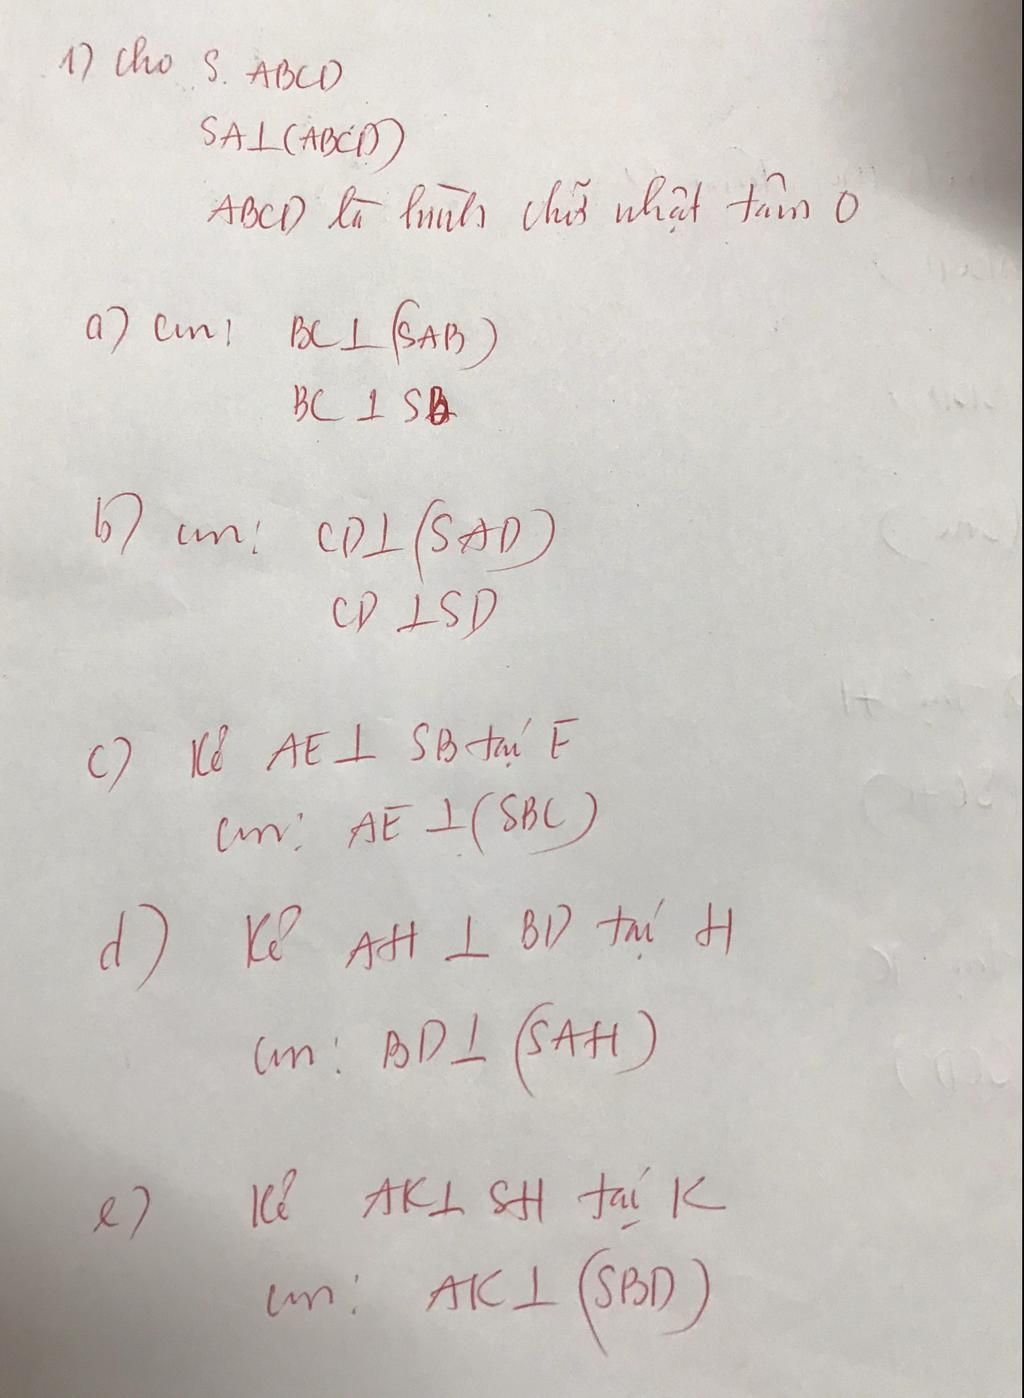 1) Cho S.ABCD
SA⊥(ABCD)
ABCD là hình chữ nhật tâm O
a) cm: BC⊥(SAB)
BC⊥SB
b) cm: CD⊥(SAD)
CD⊥SD
c) Kẻ AE⊥ SB tại E
cm: AE⊥(SBC)
d) Kẻ AH ⊥ BD tại H
cm: BD⊥ (SAH)
e) Kẻ AK⊥ SH tại K
cm: AK⊥ (SBD)